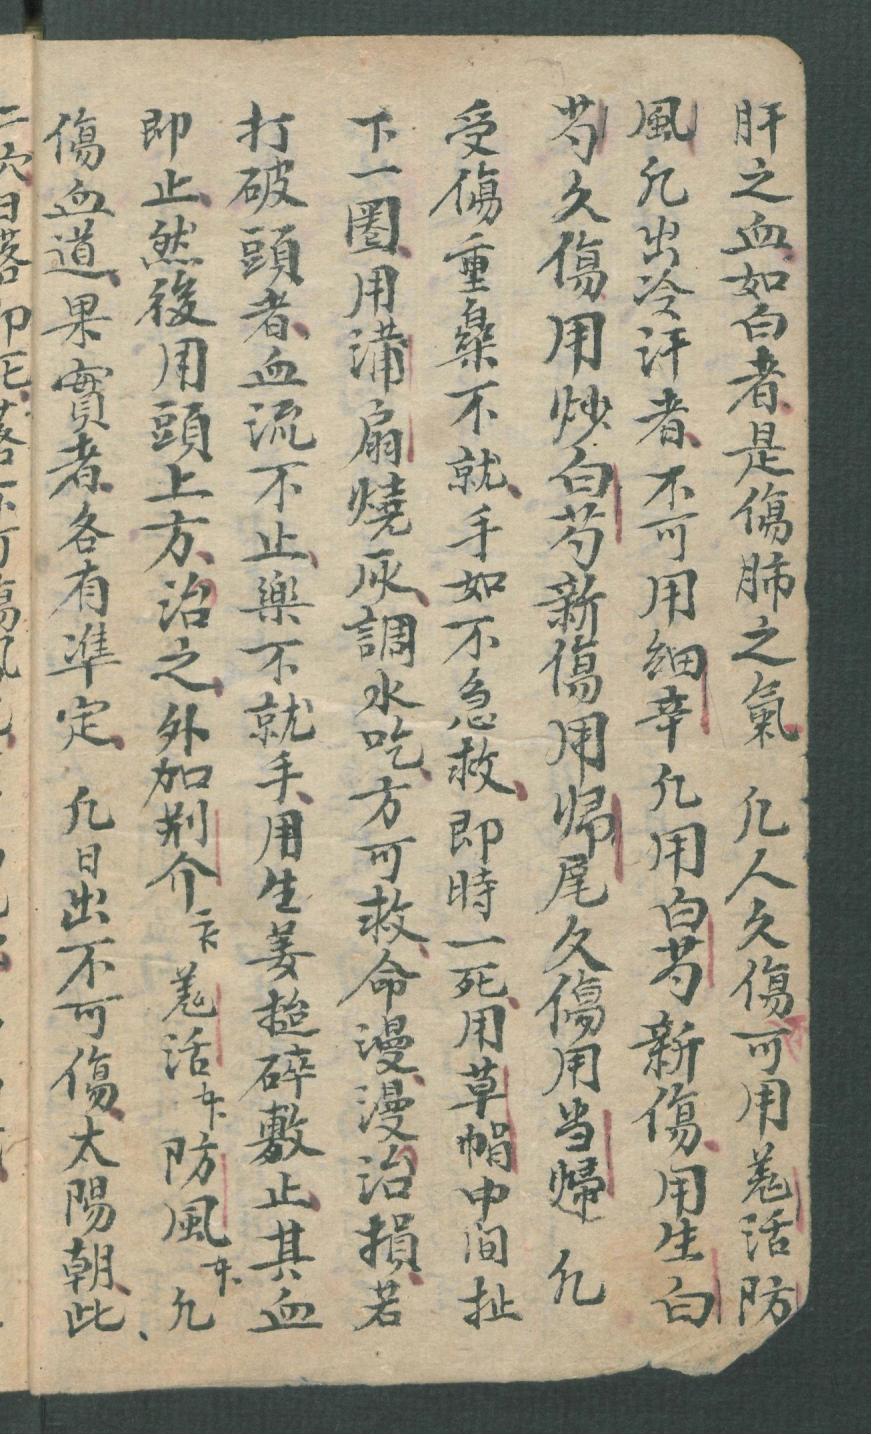 肝之血如白者是傷肺之氣 凢人久傷可用羗活防
風凢出冷汗者不可用細辛凢用白芍新傷用生白
芍久傷用炒白芍新傷用帰尾久傷用当歸 凢
受傷重藥不就手如不急救即時一死用草帽中间扯
下一圏用蒲扇燒灰調水吃方可救命漫漫治損若
打破頭者血流不止藥不就手用生姜搥碎敷止其血
即止然後用頭上方治之外加荆介羗活防風凢
傷血道果實者各有準定 凢日出不可傷太陽朝此